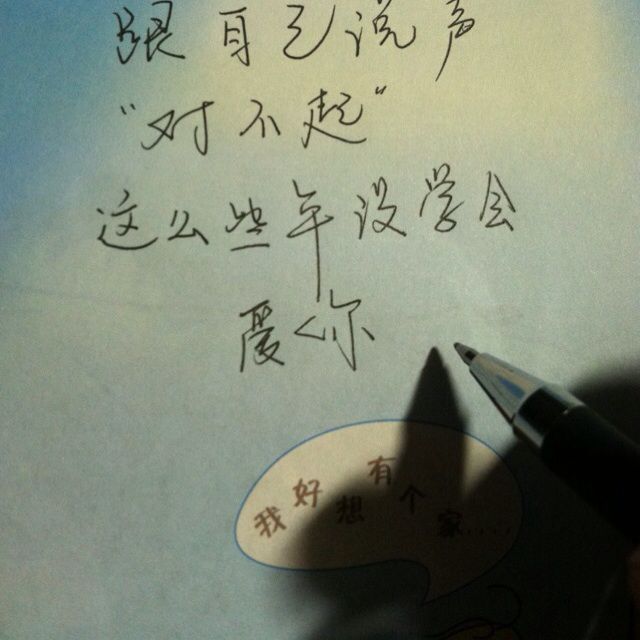 跟自己说声
“对不起”
这么些年没学会
爱你
我好想有个家....